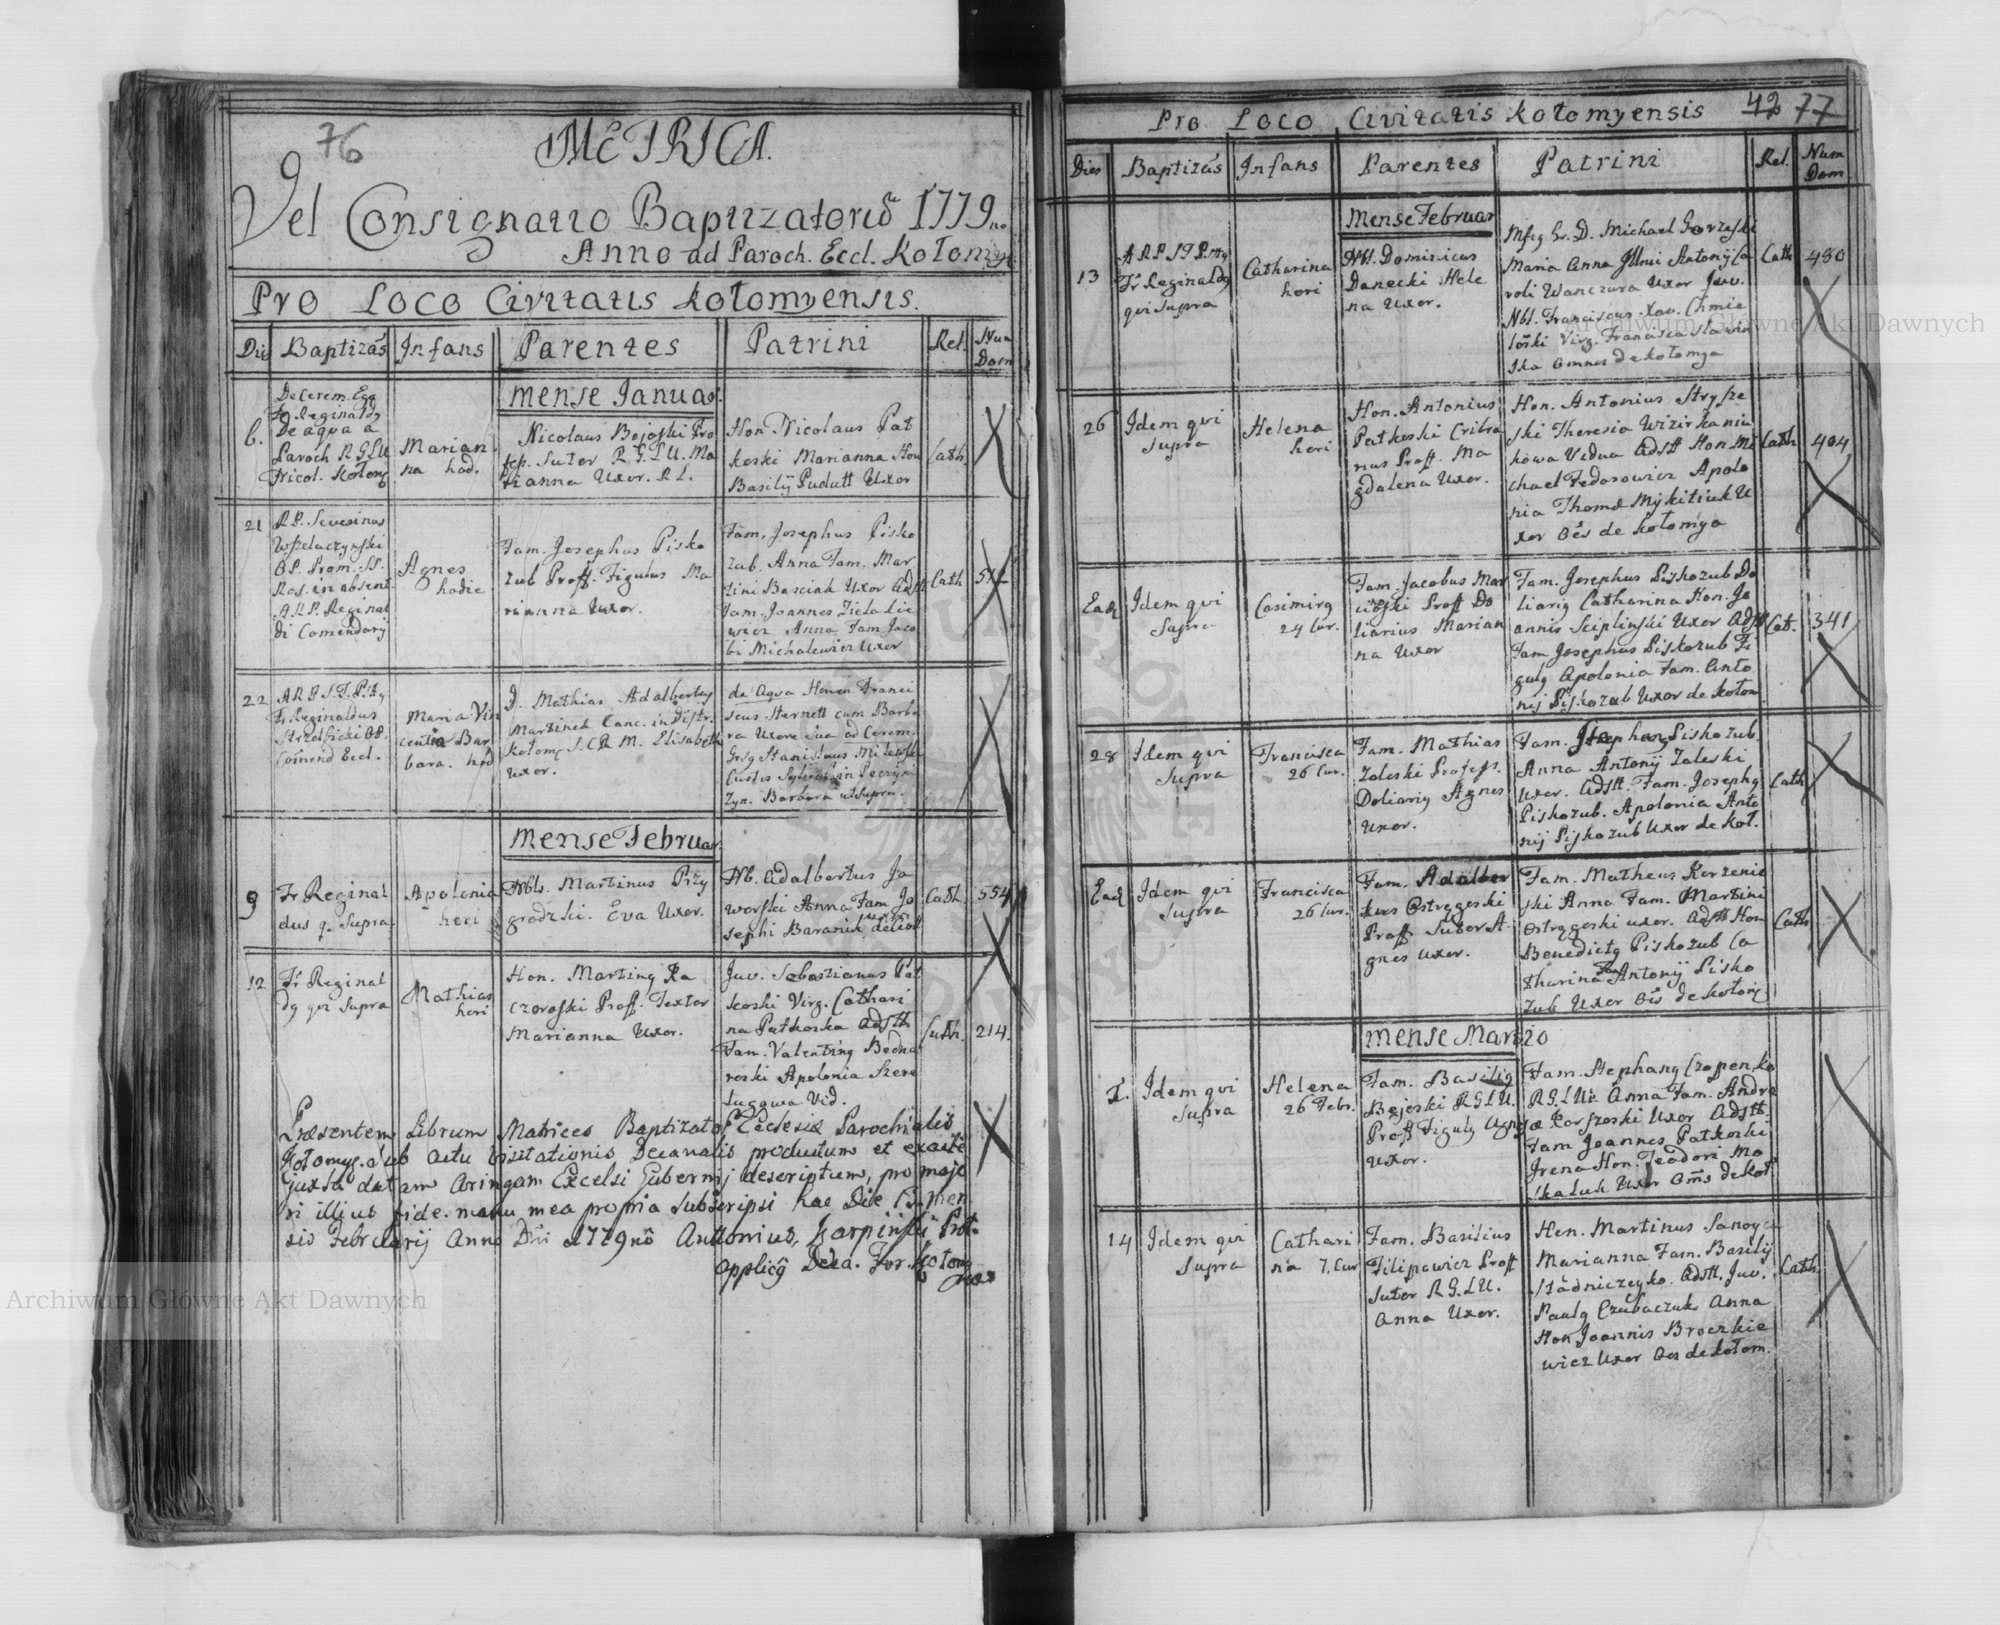 76
METRICA.
Vel Consignatio Baptizatorū 1779no
Anno ad Paroch. Eccl. Kołomy.
Pro Loco Civitatis Kołomyensis.
Die Baptizās Infans Parentes Patrini Rel. Num Dom
Mense Januar.
6.
De Cerem. Ecc
Fr Reginaldg
De aqua a
Paroch R.G.L.U
Nicol. Kołomy
Marian
na hod.
Nicolaus Bojoski Pro
fes. Sutor R.G.L.U. Ma
rianna Uxor. R L.
Hon Nicolaus Pat
koski Marianna Hon
Basilÿ Pudutt Uxor
Cath.
21
R.P. Severinus
Wszelaczynski
O.P. Prom. SS.
Ros. in absent.
A.R.P. Reginal
di Comendarÿ
Agnes
hodie
Fam. Josephus Pisko
zub Proff. Figulus Ma
rianna Uxor.
Fam. Josephus Pisko
zub. Anna Fam. Mar
tini Basciak Uxor Adstt
Fam. Joannes Zielakie
wicz Anna Fam Jaco
bi Michalewicz Uxor
Cath
22
Fr Reginaldus
Strzelficki O.P.
Cōmend Eccl.
Maria Vin
centia Bar
bara. hod
D. Mathias Adalbertg
Martinek Canc. in Distr.
Kołomy S.C.R.M. Elisabeth
Uxor.
de Aqva Honor. Franci
scus Hernett cum Barba
ra Uxore Sua ad Cerem.
Grsg Stanislaus Milewski
Barbara ut Supra.
Mense Februar.
9
Fr Reginal
dus q. Supra
Apolonia
heri
Nbls. Martinus Przy
grodzki. Eva Uxor.
Nb. Adalbertus Ja
worski Anna Fam Jo
sephi Baranik Uxor de Koł
Cath.
554
12
Fr Reginal
dg qvi Supra
Mathias
heri
Hon. Marting Ka
czoroski Proff. Textor
Marianna Uxor.
Juv. Sebastianus Pat
koski Virg. Cathari
na Patkoska Adstt.
Fam. Valenting Bedna
roski Apolonia Szere
lugowa Vid.
Cath.
214.
Præsentem Librum Matrices Baptizator Ecclesiæ Parochialis
Kołomyę. sub actu Visitationis Decanalis productum et exacte
juxta datam Aringam Excelsi Gubernij descriptum, pro majo
ri illius fide. manu mea propria Subscripsi hac Die 13 men
sis Februarij Anno Dñi 1779nō Antonius Karpiński Prot.
Applicg Deca. For. Kołomy
42 77
Pro Loco Civitatis Kołomyensis
Dies Baptizās Infans Parentes Patrini Rel. Num Dom
Mense Februar
13
Fr Reginaldg
qvi Supra
Catharina
heri
Nbl. Dominicus
Danecki Hele
na Uxor.
Mfcg Gr. D. Michael Gorzski
Maria Anna Jllmi Antonij Ca
roli Wanczura Uxor Juv.
Nbl. Franciscus Xav. Chmie
lōski Virg. Francisca Slawin
ska Omnes de Kołomya
Cath
480
26
Idem qvi
Supra
Helena
heri
Hon. Antonius
Patkoski Cribra
rius Proff. Ma
gdalena Uxor.
Hon. Antonius Strysze
ski Theresia Wizirkaniu
kowa Vidua Adstt Hon. Mi
chael Fedorowicz Apolo
nia Thomæ Mÿkitiuk U
xor Oēs de Kołomya
Cath
404
Ead
Idem qvi
Supra
Casimirg
24 Cur.
Fam. Jacobus Mar
ciōski Proff Do
liarius Marian
na Uxor
Fam. Josephus Piskozub Do
liarig Catharina Hon. Jo
annis Sciplinski Uxor Adstt
Fam Josephus Piskozub Fi
gulg Apolonia Fam. Anto
nij Piskozub Uxor de Kołom
Cat.
341
28
Idem qvi
Supra
Francisca
26 Cur.
Fam. Mathias
Zaleski Profess.
Doliarig Agnes
Uxor.
Fam. Stephang Piskozub.
Anna Antonij Zaleski
Uxor. Adstt. Fam. Josephg
Piskozub. Apolonia Anto
nij Piskozub Uxor de Koł.
Cath
Ead
Idem qvi
Supra
Francisca
26 Cur.
Fam. Adalber
tus Ostręgoski
Proff Sutor A
gnes Uxor.
Fam. Matheus Korzenio
ski Anna Fam. Martini
Ostręgoski uxor. Adstt Hon
Benedictg Piskozub Ca
tharina Fam Antonij Pisko
zub Uxor Oēs de Kołomy
Cath
Mense Martio
1.
Idem qvi
Supra
Helena
26 Febr.
Fam. Basilig
Bojeski R.G.L.U.
Proff Figulg Agnes
Uxor.
Fam. Stephang Czopenko
R.G.L.U. Anna Fam. Andre
æ Korszoski Uxor Adstt.
Fam Joannes Patkoski
Irena Hon. Teodori Mo
skaluk Uxor Oms de Koł
14
Idem qvi
Supra
Cathari
na 7. Cur
Fam. Basilius
Filipowicz Proff
Sutor R.G.L.U.
Anna Uxor.
Hon. Martinus Sanoyca
Marianna Fam. Basilij
Stadniczeyko. Adstt. Juv.
Paulg Czubaczuk Anna
Hon Joannis Broczkie
wicz Uxor Oes de Kołom.
Cath
Archiwum Główne Akt Dawnych
Archiwum Główne Akt Dawnych